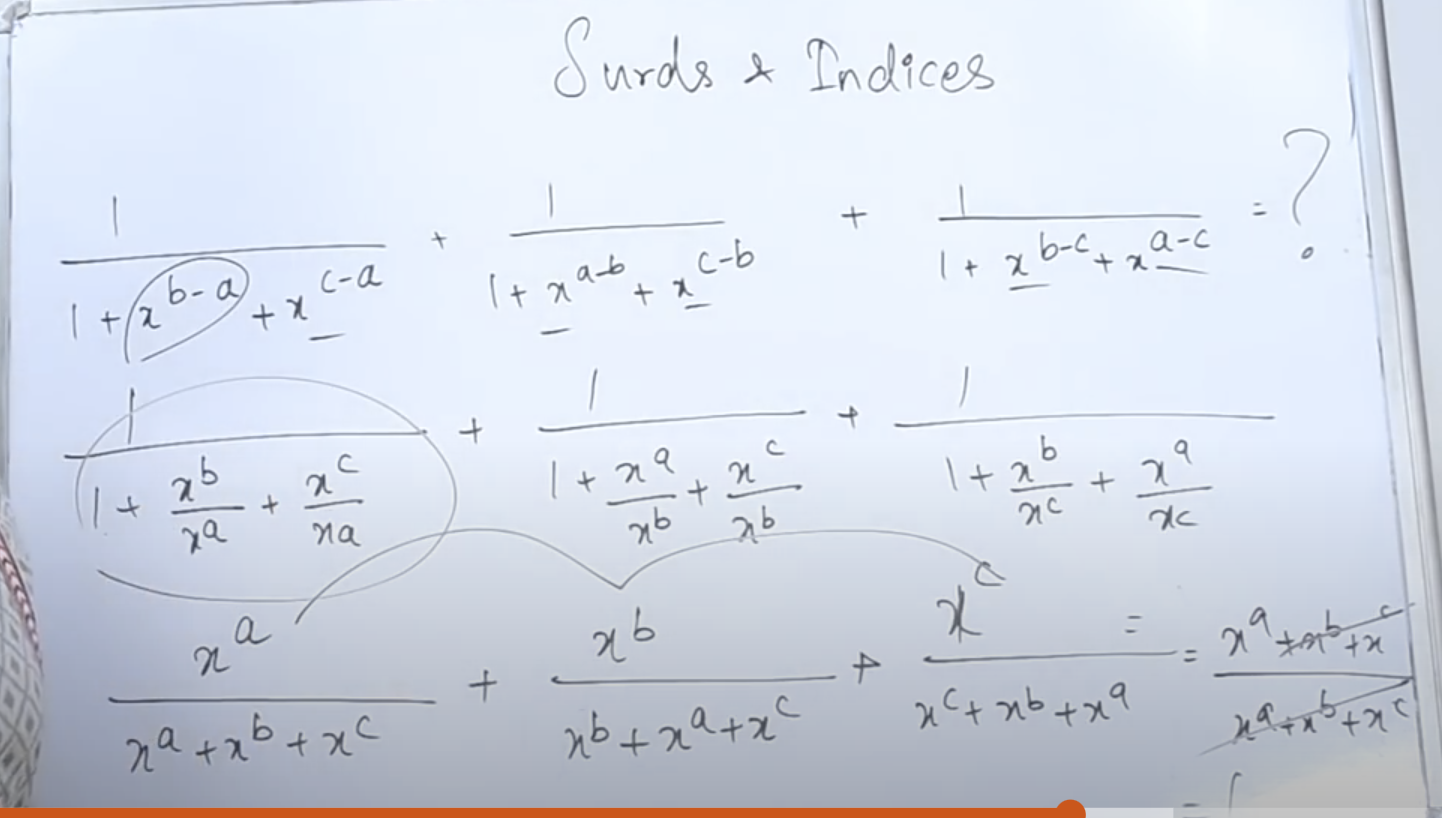 Surds & Indices
1/(1 + x^(b-a) + x^(c-a)) + 1/(1 + x^(a-b) + x^(c-b)) + 1/(1 + x^(b-c) + x^(a-c)) = ?
1/(1 + x^b/x^a + x^c/x^a) + 1/(1 + x^a/x^b + x^c/x^b) + 1/(1 + x^b/x^c + x^a/x^c)
x^a/(x^a + x^b + x^c) + x^b/(x^b + x^a + x^c) + x^c/(x^c + x^b + x^a) = = (x^a + x^b + x^c)/(x^a + x^b + x^c)
=